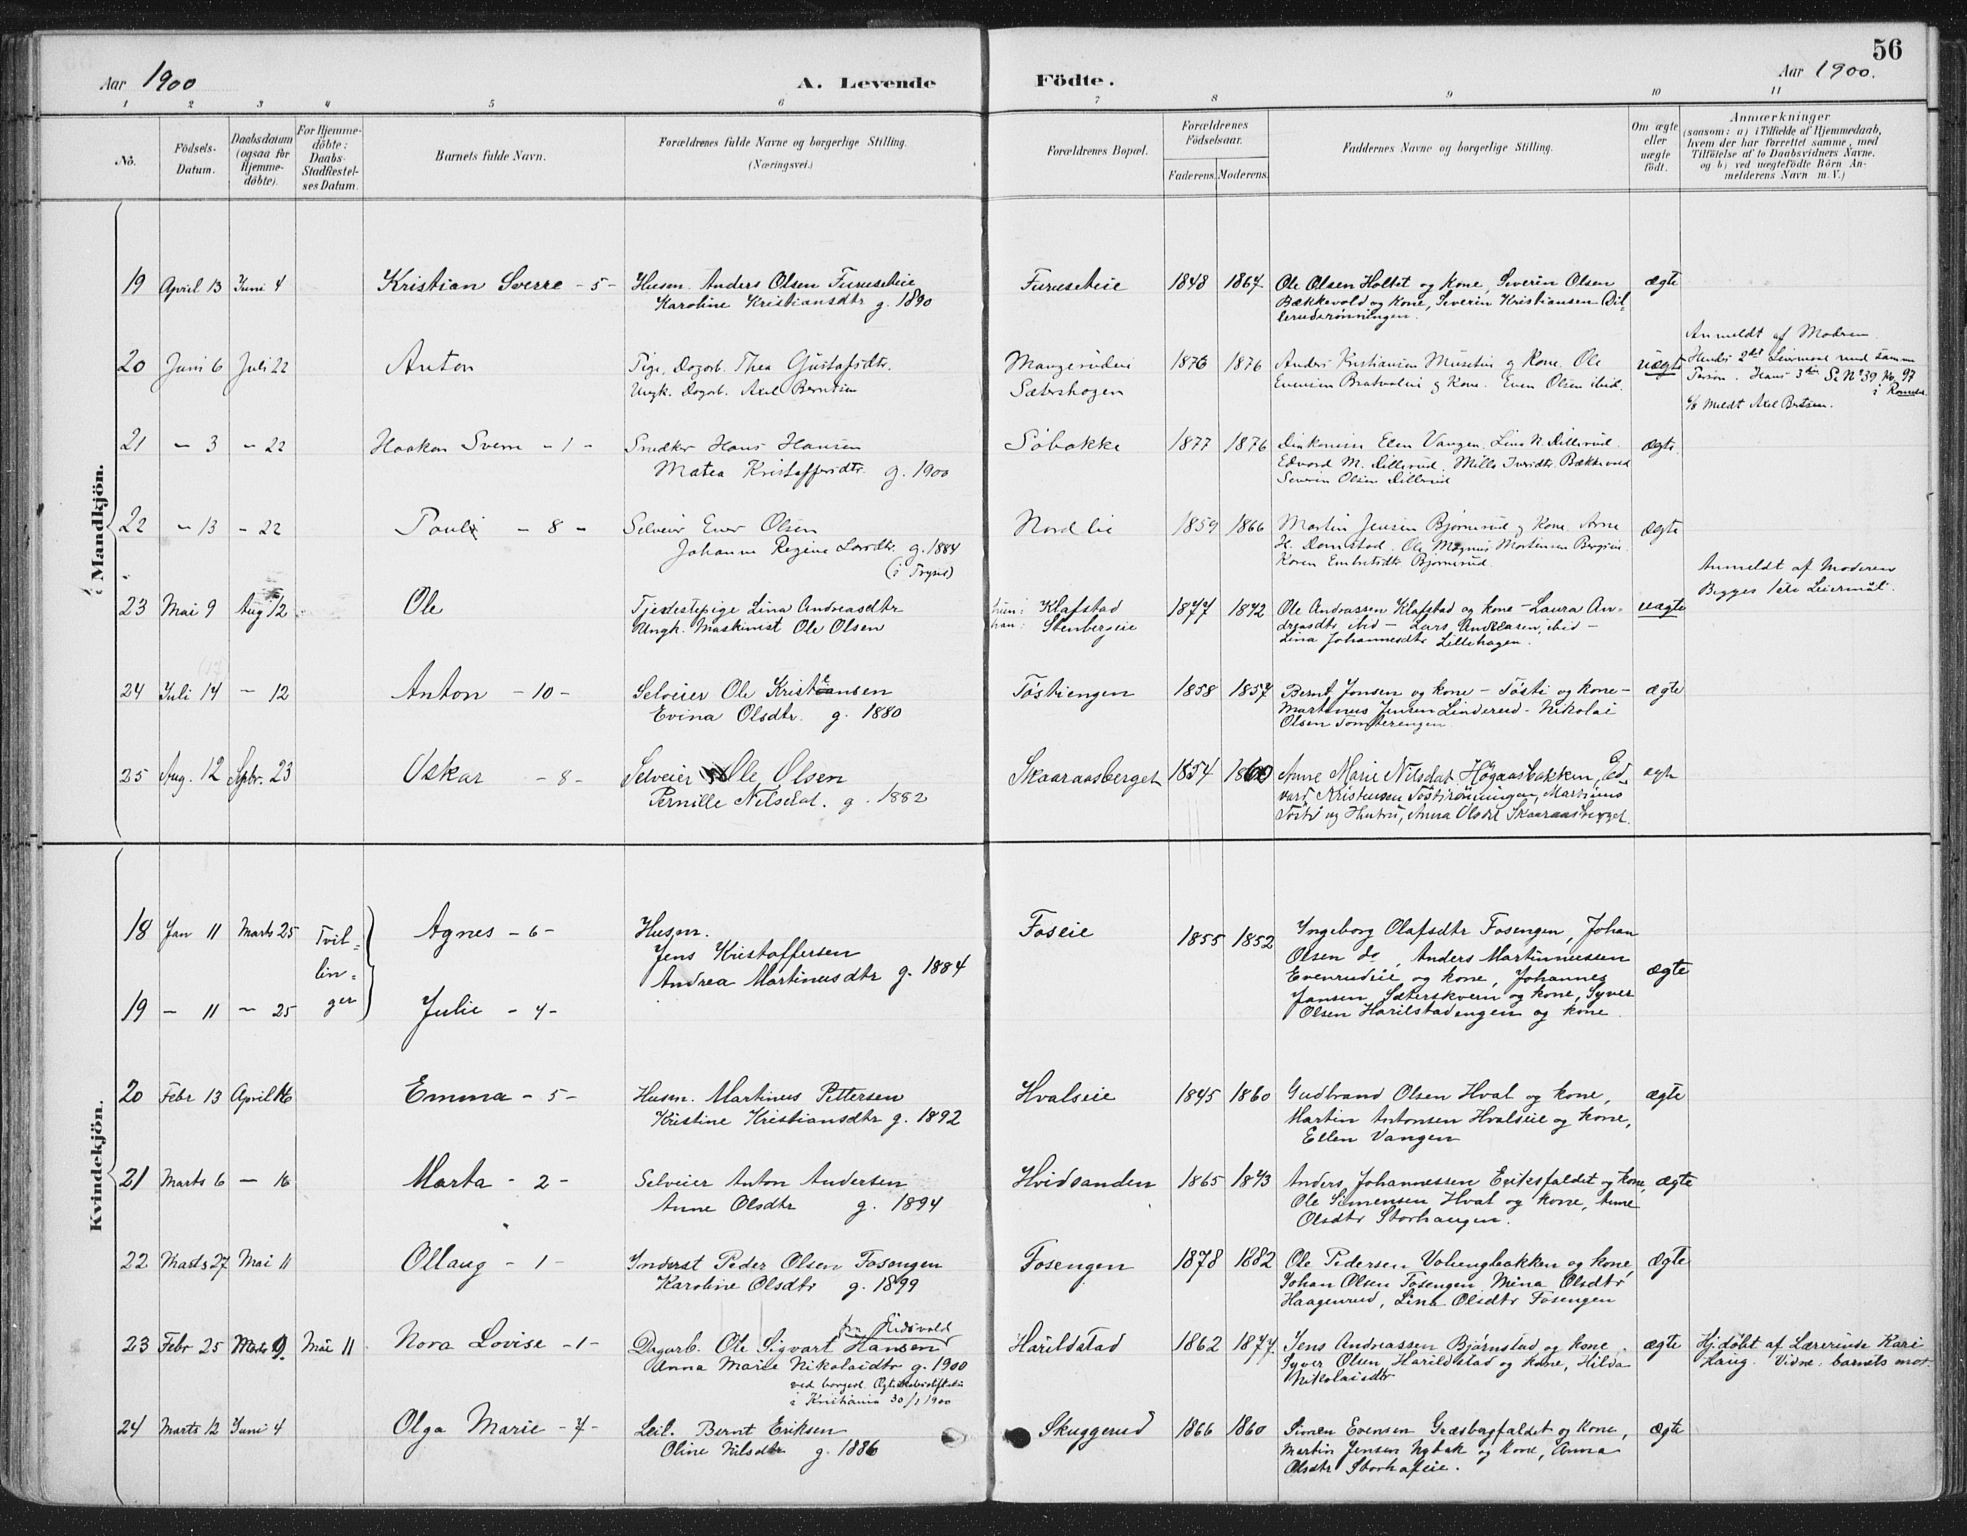 56
Aar 1900
A. Levende Födte.
Aar 1900.
1 2 3 4 5 6 7 8 9 10 11
No.
Födsels-Datum.
Daabsdatum (ogsaa for Hjemme-döbte).
For Hjemme-döbte: Daabs-Stadfæstel-ses Datum.
Barnets fulde Navn.
Forældrenes fulde Navne og borgerlige Stilling.
(Næringsvei.)
Forældrenes Bopæl.
Forældrenes Födselsaar.
Faderens. Moderens.
Faddernes Navne og borgerlige Stilling.
Om ægte eller uægte födt.
Anmærkninger
(saasom: a) i Tilfælde af Hjemmedaab,
hvem der har forrettet samme, med
Tilföielse af to Daabsvidners Navne,
og b) ved uægtefödte Börn An-
melderens Navn m. V.)
Mandkjön.
19 April 13 Juni 4 Kristian Sverre - 5 - Husm. Anders Olsen Furuseteie Furuseteie 1848 1867 Ole Olsen Holtet og kone, Severin Olsen ægte
Karoline Kristiansdtr g. 1890 Bækkevold og kone, Severin Kristiansen Dil-
lerudsrönningen.
20 Juni 6 Juli 22 Anton Pige, Dagarb. Thea Gustafsdtr. 1876 1876 Anders Kristiansen og Kone. Ole uægte Anmeldt af Modren
Ungk. Dagarb. Axel Berntsen Sætershagen og Kone. Even Olsen ibid.
21 - 3 - 22 Haakon Sverre - 1 - Snedker Hans Hansen Söbakke 1877 1876 Elen Vangen, Lina N. Dillerud. ægte
Matea Kristoffersdtr. g. 1900 Edvard M. Dillerud.
Severin Olsen Dillerud
22 - 13 - 22 Paul - 8 - Selveier Ener Olsen Nordlie 1859 1866 Martin Jensen Björnerud og Kone. Arne ægte
Johanne Regine g. 1884 Ole Magnus Mortensen
(i Trysil) Karen Björnerud.
23 Mai 9 Aug 12 Ole Tjenestepige Lina Andreasdtr hun: Klafstad 1877 1872 Ole Andreassen Klafstad og kone - Laura An- uægte Anmeldt af Moderen
Ungk. Maskinist Ole Olsen han: Stenbergeie dreasdtr ibid - Lars Andreasen, ibid - Begges 1ste Leiermål.
Lina Johannesdtr Lillehagen.
24 Juli 14 - 12 Anton - 10 - Selveier Ole Kristiansen Töstiengen 1858 1857 Bernt Jonsen og kone - Tösti og kone - ægte
Evina Olsdtr. g. 1880 Martinus Jensen Linderud - Nikolai
Olsen Tomterengen.
25 Aug. 12 Sptbr. 23 Oskar - 8 - Selveier Ole Olsen Skaaraasberget 1854 1860 Anne Marie Nilsdat Högaasbakken, Ed- ægte
Pernille Nilsdat. g. 1882 vard Kristensen Töstirönningen, Martinus
Tösti og Hustru, Anna Olsdtr Skaaraasberget.
Kvindekjön.
18 Jan 11 Marts 25 Tvil- Agnes - 6 - Husm. Foseie 1855 1852 Ingeborg Olafsdtr Fosengen, Johan
lin- Jens Kristoffersen Olsen do, Anders Martinnussen
ger Andrea Martinusdtr g. 1884 Evenrudeie og kone, Johannes ægte
19 - 11 - 25 Julie - 4 - Jansen Sæterskvern og kone, Syver
Olsen Harilstadengen og kone
20 Febr 13 April 16 Emma - 5 - Husm. Martinus Pettersen Hvalseie 1845 1860 Gudbrand Olsen Hval og kone, ægte
Kristine Kristiansdtr g. 1892 Martin Antonsen Hvalseie og kone,
Ellen Vangen
21 Marts 6 - 16 Marta - 2 - Selveier Anton Andersen Hvidsanden 1865 1873 Anders Johannessen Eriksfaldet og kone, ægte
Anne Olsdtr g. 1894 Ole Simensen Hval og kone, Anne
Olsdtr Storhaugen.
22 Marts 27 Mai 11 Ollaug - 1 - Inderst Peder Olsen Fosengen Fosengen 1878 1882 Ole Pedersen Volengbakken og kone, ægte
Karoline Olsdtr g. 1899 Johan Olsen Fosengen, Mina Olsdtr
Haagenrud, Lina Olsdtr Fosengen
23 Febr 25 Marts 9. Mai 11 Nora Lovise - 1 - Dagarb. Ole Sigvart Hansen fra Eidsvold Harildstad 1862 1877 Jens Andreassen Björnstad og kone, ægte Hj.döbt af Lærerinde Kari
Anna Marie Nikolaidtr g. 1900 Syver Olsen Harildstad og kone, Hilda Haug. Vidne. barnets mor
ved borgerl. Nikolaisdtr
i Kristiania 30/1 1900
24 Marts 12 Juni 4 Olga Marie - 7 - Leil. Bernt Eriksen Skuggerud 1866 1860 Simen Evensen Græsbergfaldet og kone, ægte
Oline Nilsdtr g. 1886 Martin Jensen Nybak og kone, Anna
Olsdtr Storhofeie.